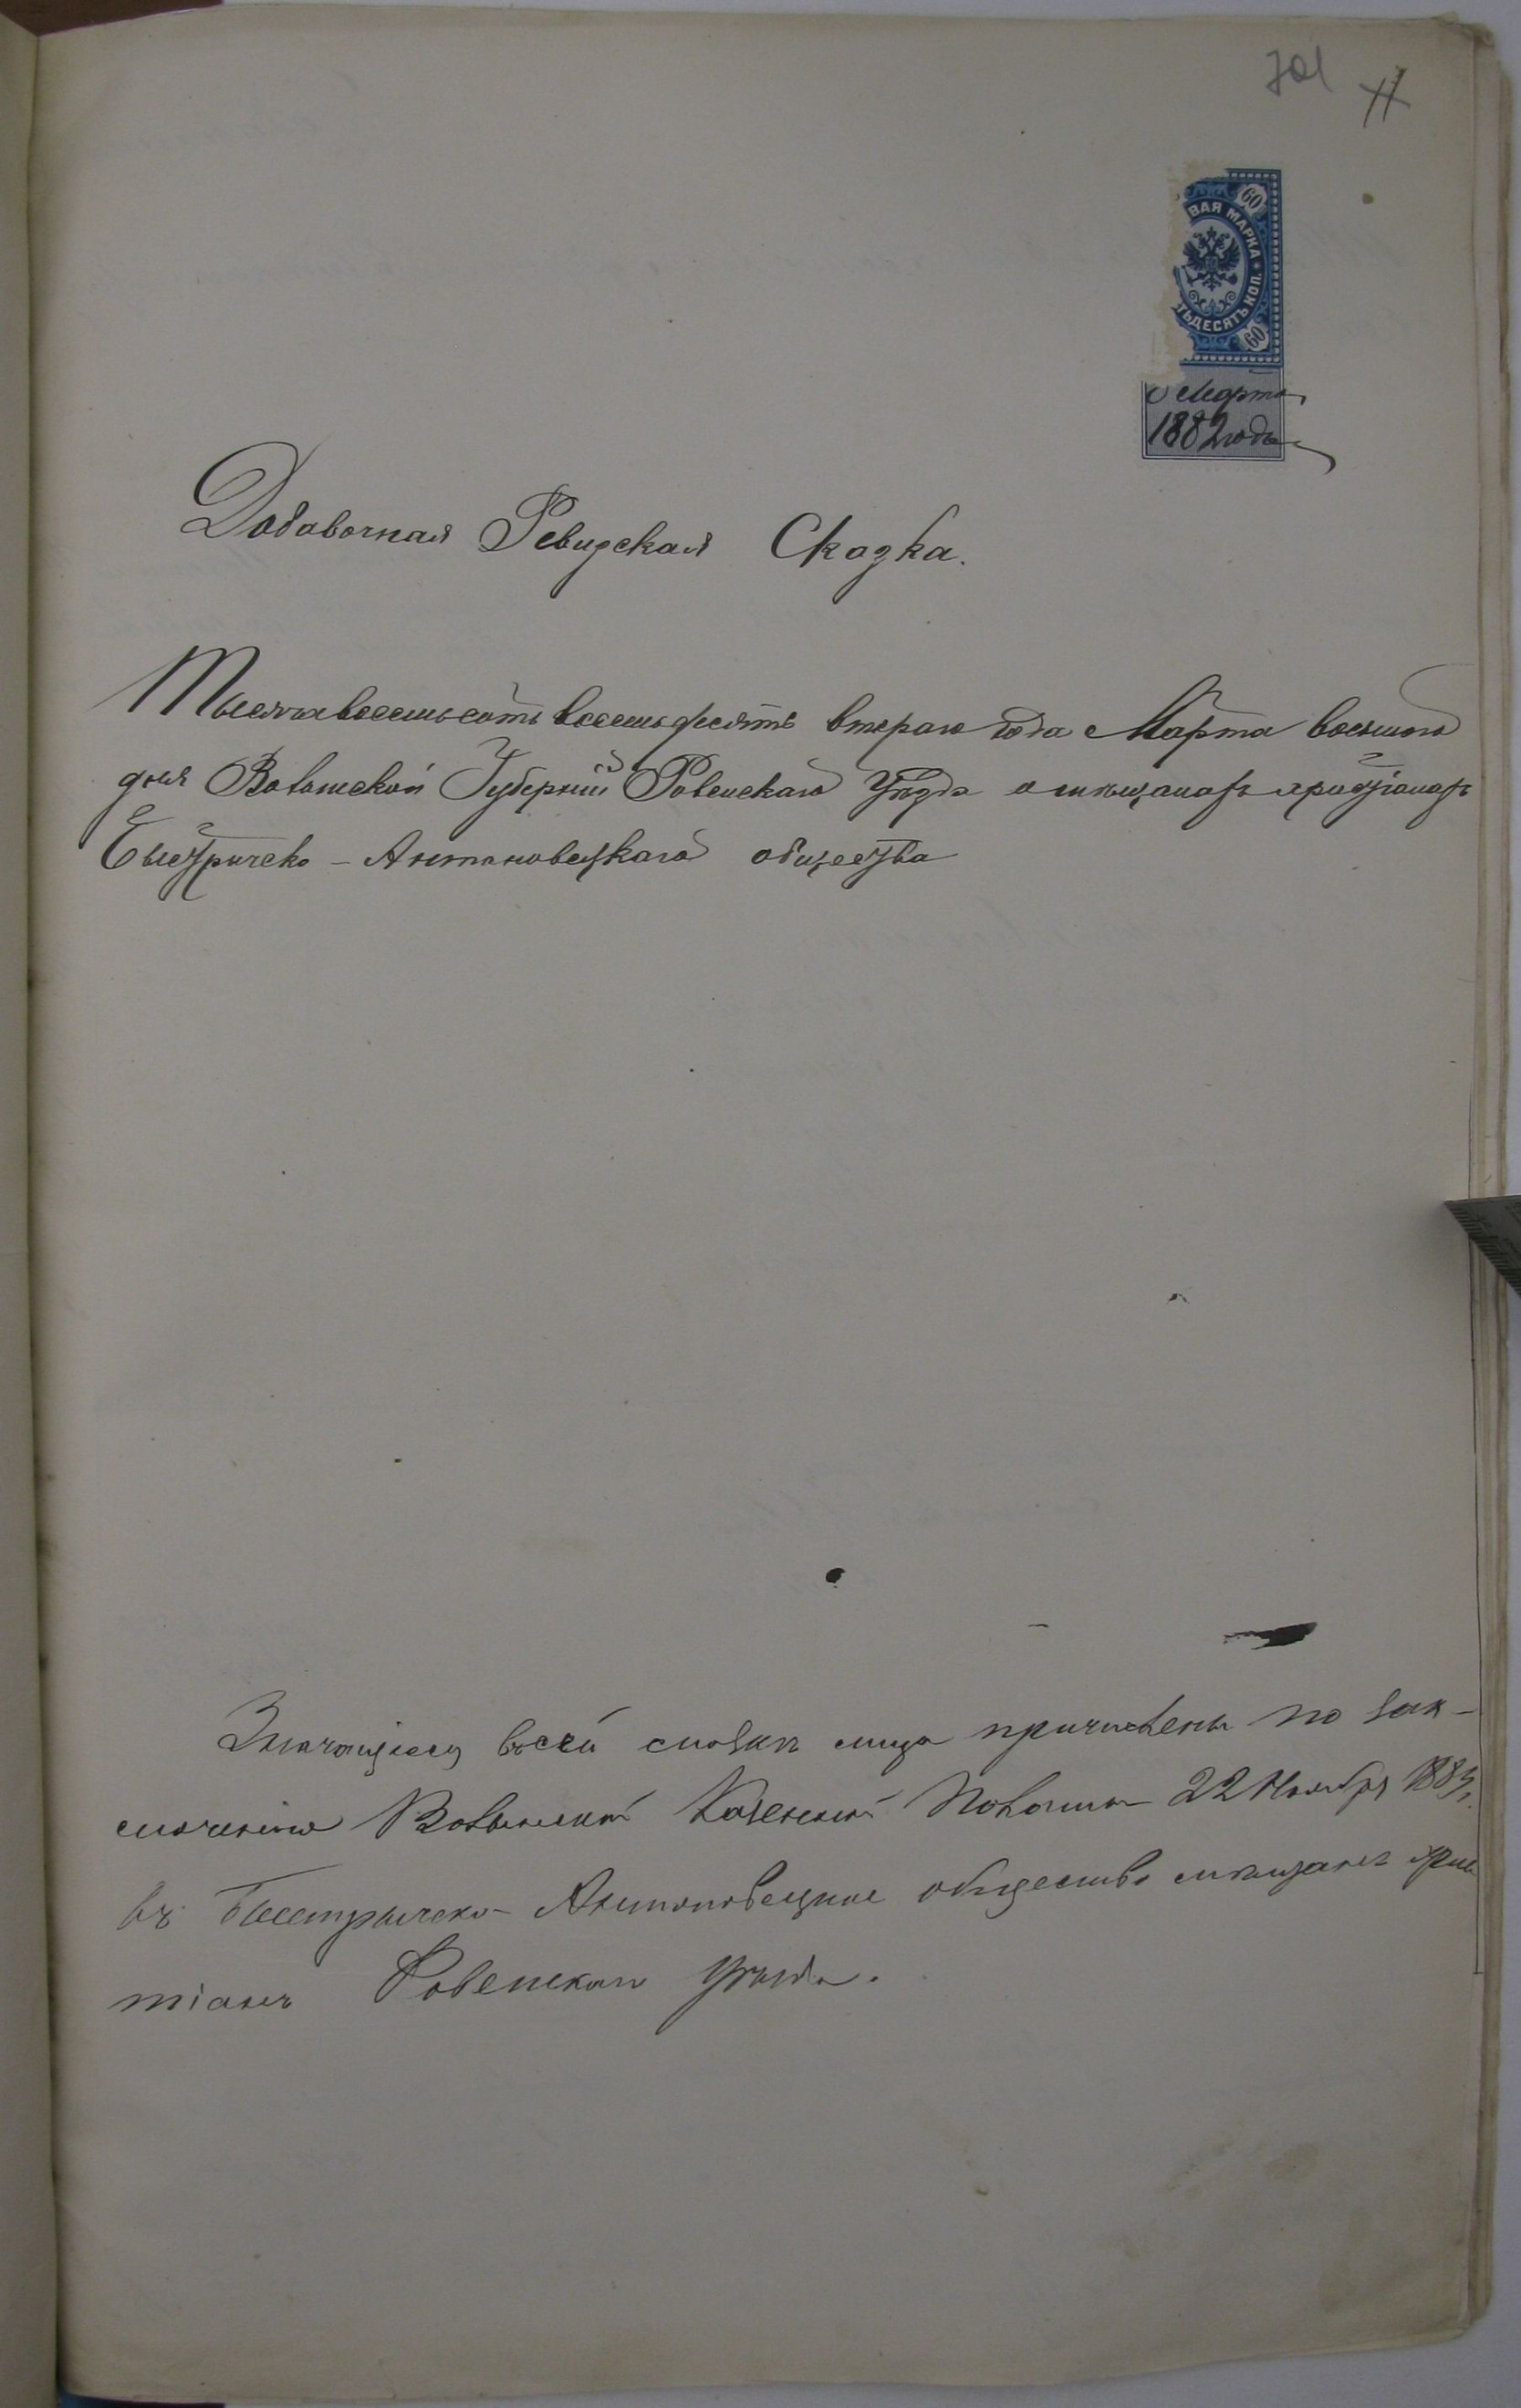 701
60
ВАЯ МАРКА
ТЬДЕСЯТЪ КОП.
60
Марта
1882 года
Добавочная Ревизская Сказка.
Тысяча восемьсотъ восемьдесятъ втораго года Марта восьмого
дня Волынской Губерніи Ровенскаго Уѣзда о мѣщанахъ христіанахъ
Быстричско-Антоновецкаго общества
Значащіеся въ сей сказкѣ лица причислены по зак-
люченію Волынской Казенной Палаты 22 Ноября
въ Быстричско-Антоновецкое общество мѣщанъ хрис
тіанъ Ровенскаго Уѣзда.